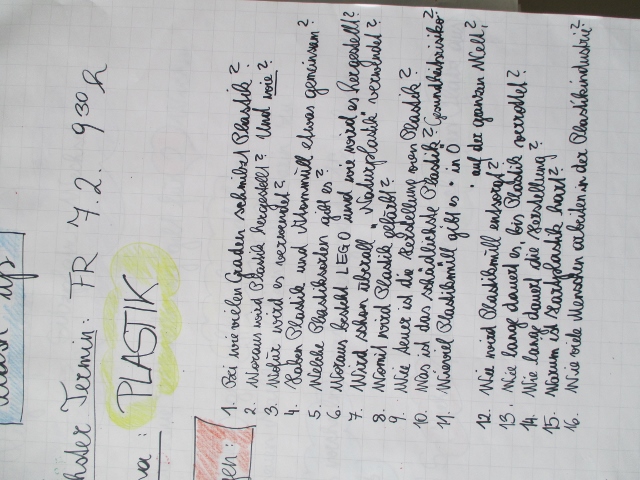 Termin: FR 7.2. 9 30 h
PLASTIK
gen:
1. Bei wie vielen Graden schmilzt Plastik?
2. Woraus wird Plastik hergestellt? Und wie?
3. Wofür wird es verwendet?
4. Haben Plastik und Atommüll etwas gemeinsam?
5. Welche Plastiksorten gibt es?
6. Woraus besteht LEGO und wie wird es hergestellt?
7. Wird schon überall "Naturplastik" verwendet?
8. Womit wird Plastik gefärbt?
9. Wie teuer ist die Herstellung von Plastik?
10. Was ist das schädlichste Plastik? Gesundheitsrisiko?
11. Wieviel Plastikmüll gibt es • in Ö
• auf der ganzen Welt?
12. Wie wird Plastikmüll entsorgt?
13. Wie lange dauert es, bis Plastik verrottet?
14. Wie lange dauert die Herstellung?
15. Warum ist Hartplastik hart?
16. Wie viele Menschen arbeiten in der Plastikindustrie?